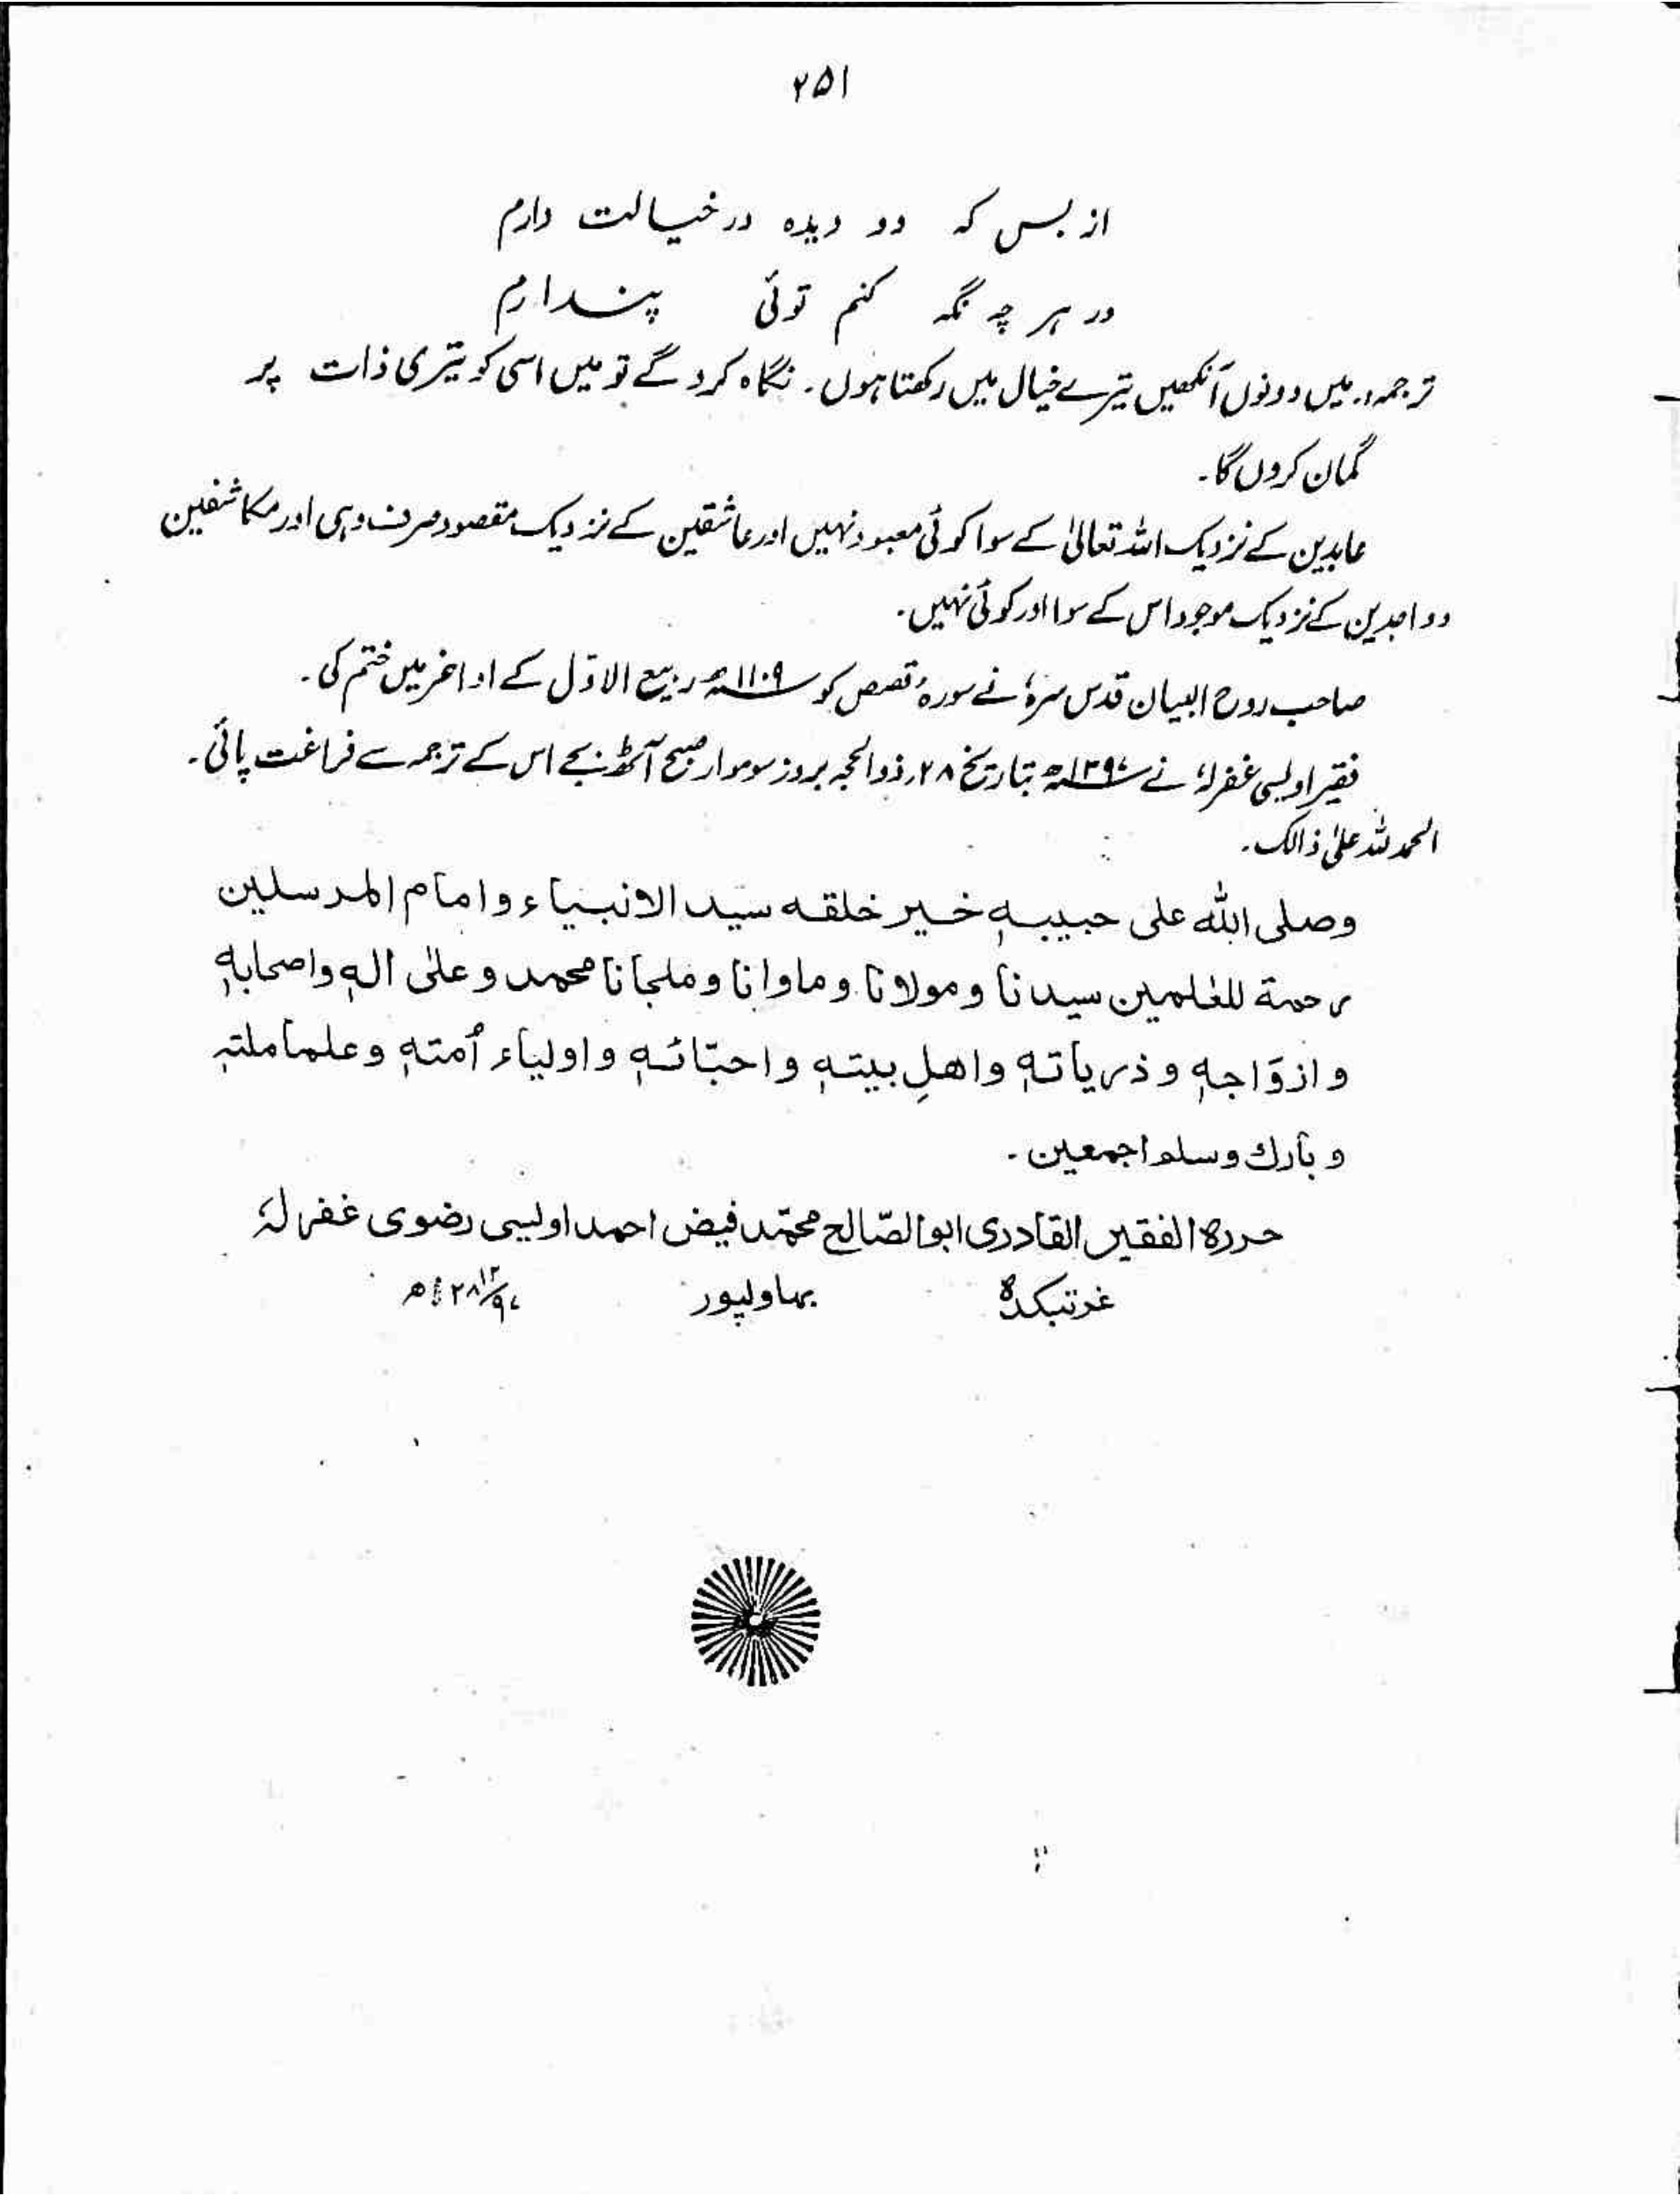 ۲۵۱
از بس کہ دو دیدہ در خیالت دارم
در ہر چہ نگہ کنم توئی پندارم
ترجمہ:۔ میں دونوں آنکھیں تیرے خیال میں رکھتا ہوں۔ نگاہ کرو گے تو میں اسی کو تیری ذات پر
گمان کروں گا۔
عابدین کے نزدیک اللہ تعالیٰ کے سوا کوئی معبود نہیں اور عاشقین کے نزدیک مقصود صرف وہی اور مکاشفین
و واجدین کے نزدیک موجود اس کے سوا اور کوئی نہیں۔
صاحب روح البیان قدس سرہٗ نے سورہٗ قصص کو ۱۱۰۹ھ ربیع الاوّل کے اواخر میں ختم کی۔
فقیر اویسی غفرلہٗ نے بتاریخ ۲۸ ذوالحجہ بروز سوموار صبح آٹھ بجے اس کے ترجمہ سے فراغت پائی۔
الحمد للہ علیٰ ذالک۔
وصلی اللہ علی حبیبہٖ خیر خلقہ سید الانبیاء و امام المرسلین
رحمة للعٰلمین سیدنا و مولانا و ماوانا و ملجانا محمد و علیٰ اٰلہٖ واصحابہٖ
و ازوَاجہٖ و ذریاتہٖ واھلِ بیتہٖ و احبّائہٖ و اولیاء اُمتہٖ و علما ملتہٖ
و بارك وسلم اجمعین۔
حررہٗ الفقیر القادری ابو الصّالح محمّد فیض احمد اویسی رضوی غفرلہٗ
غربتکدہ بہاولپور